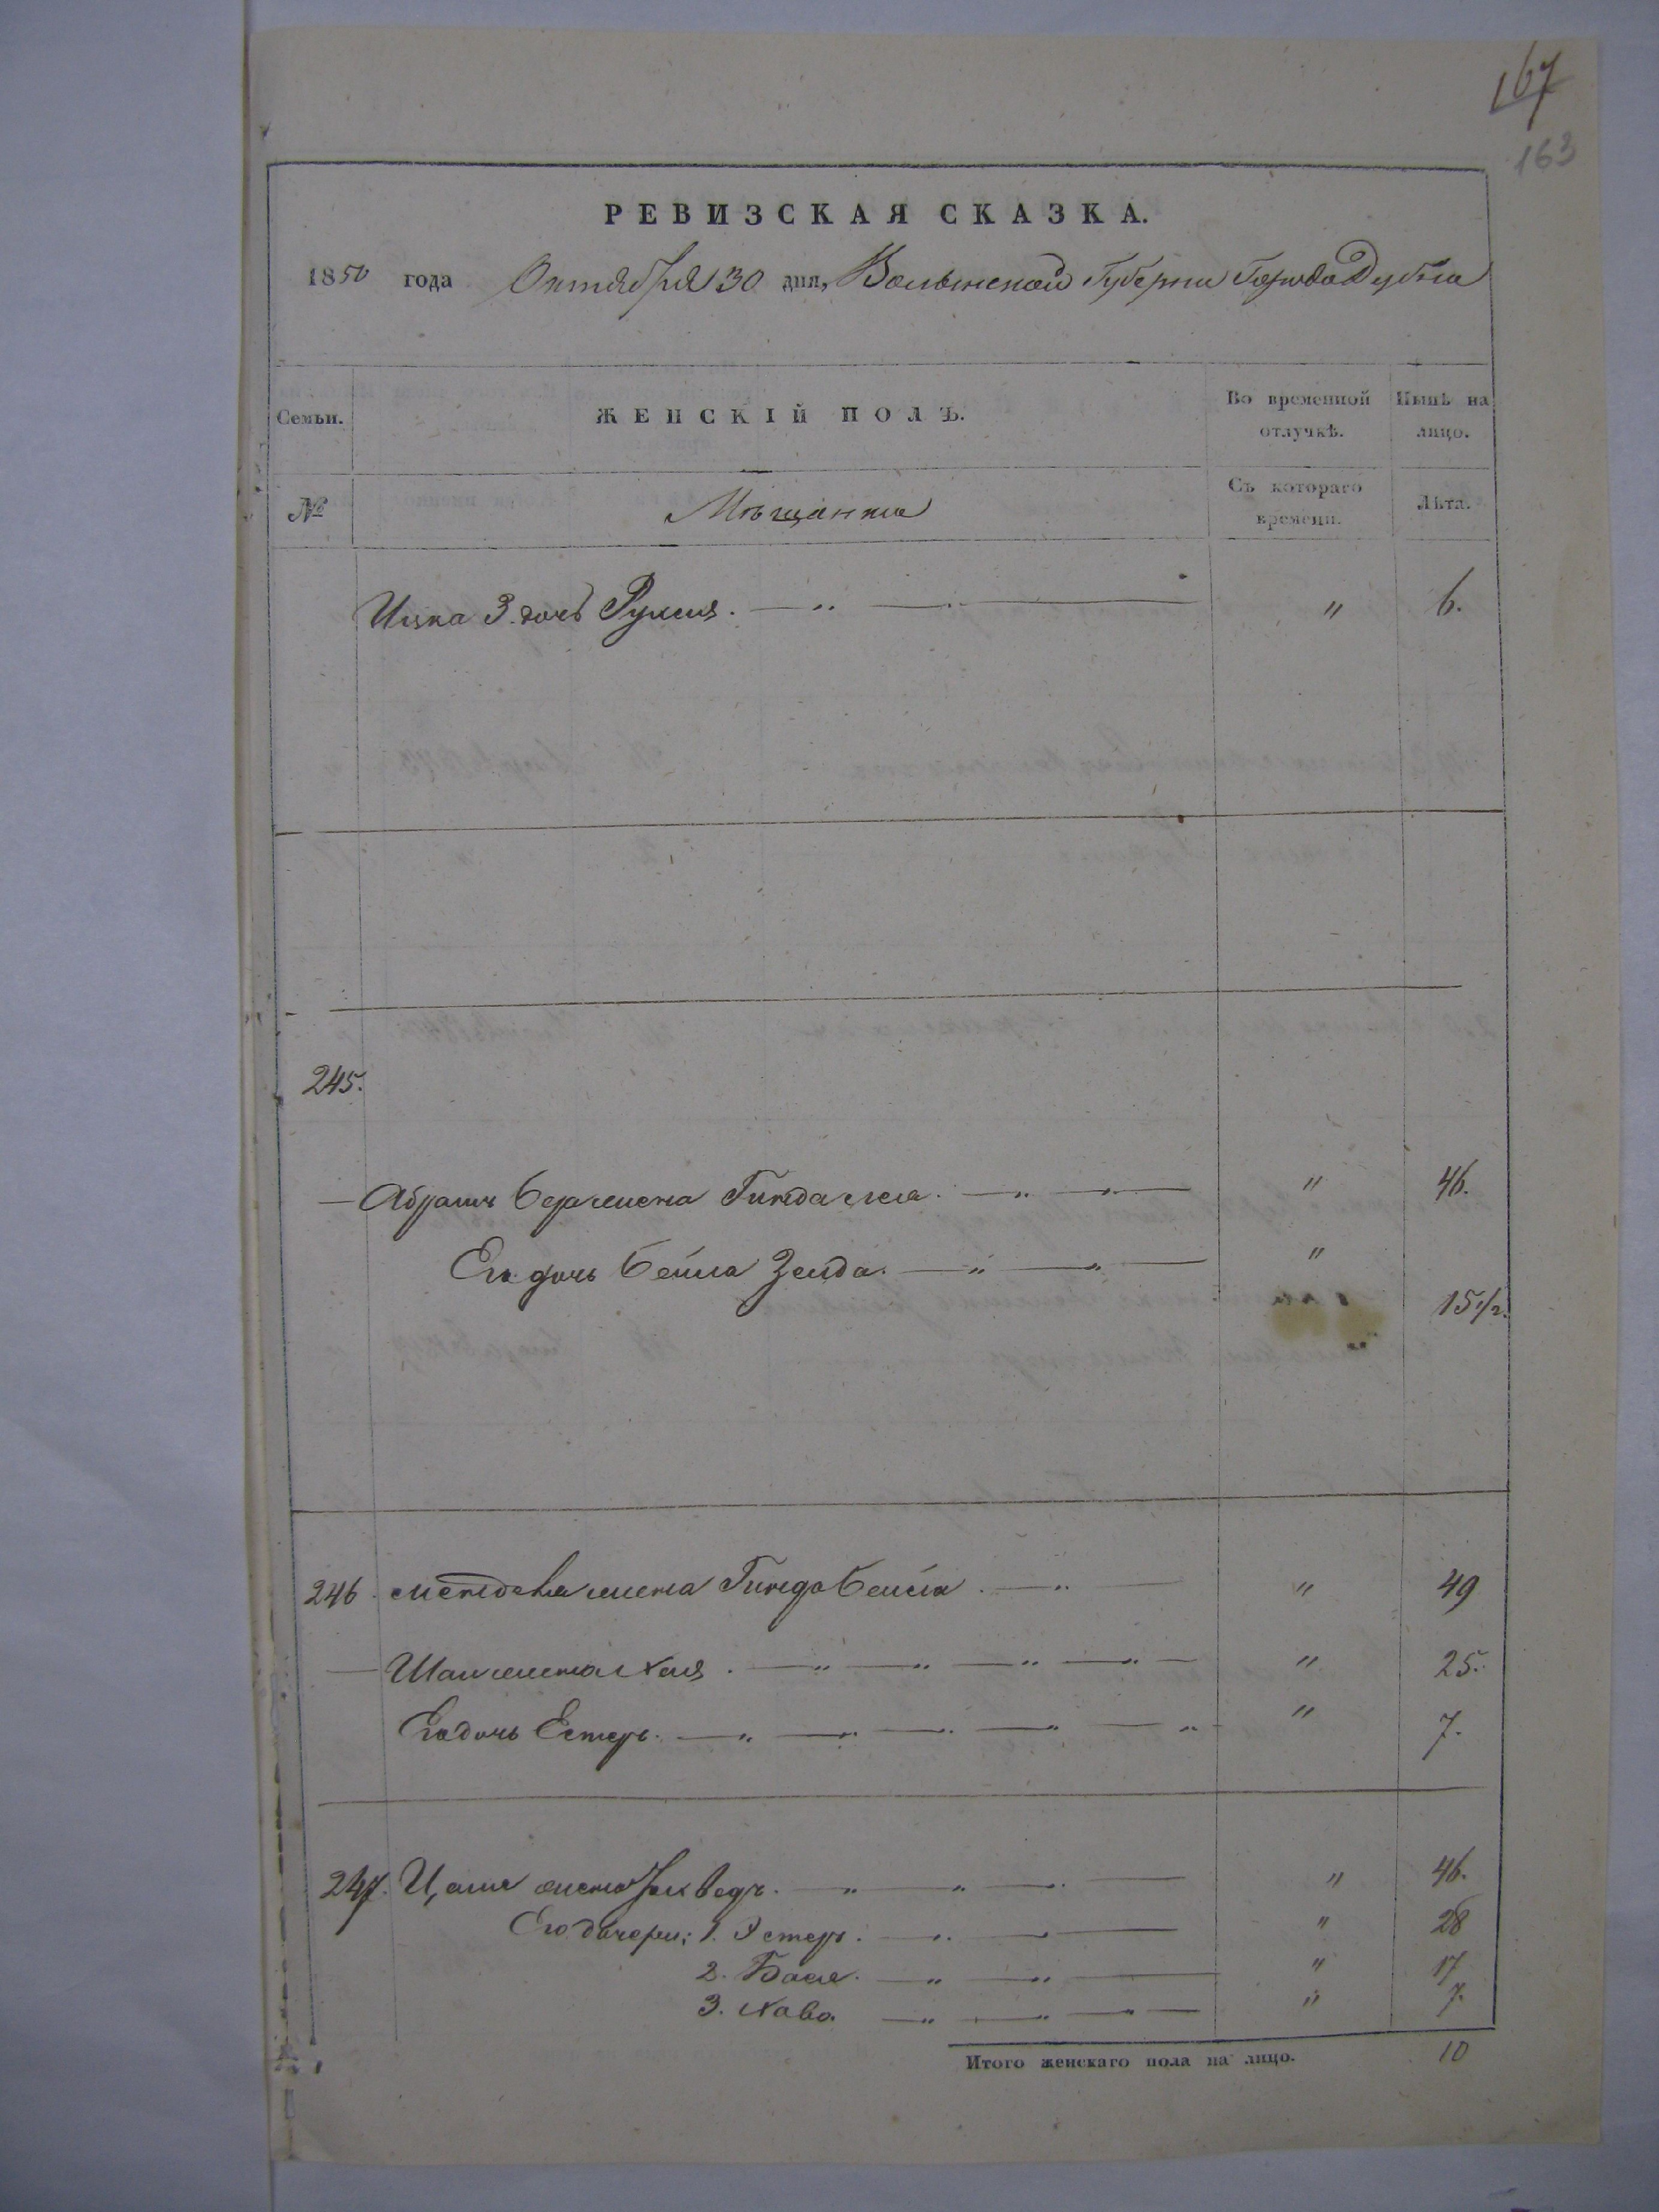 167
163
РЕВИЗСКАЯ СКАЗКА.
1850 года Октября 30 дня, Волынской Губерни Города Дубна
Семьи. ЖЕНСКІЙ ПОЛЪ. Во временной отлучкѣ. Нынѣ на лицо.
№ Мѣщанки Съ котораго времени. Лѣта.
Ицка 3. дочь " 6.
245.
Абрамъ Бера жена " 46.
Его дочь Бейла Зелда. " 15 1/2.
246. жена Гинда Бейла " 49
жена Хая. " 25.
Его дочь Естеръ. " 7.
247. жена " 46.
Его дочери: 1. Эстеръ. " 28
2. Бася. " 17
3. Хава. " 7.
Итого женскаго пола на лицо. 10